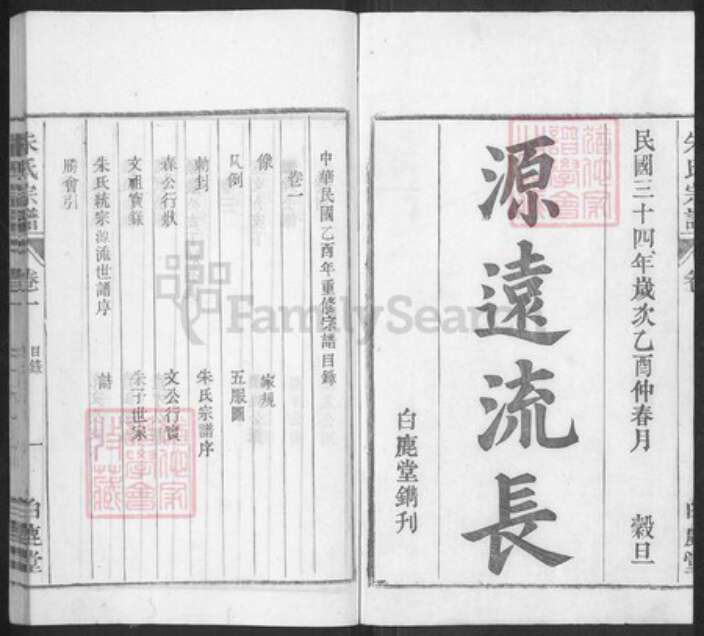 民國三十四年歲次乙酉仲春月 穀旦
源遠流長
白鹿堂鐫刊
中華民國乙酉年重修宗譜目錄
卷一
像 家規
凡例 五服圖
勅封 朱氏宗譜序
森公行狀 文公行實
文祖實錄 朱子世家
朱氏統宗源流世譜序 誥
勝會引
朱氏宗譜 卷一 目錄 一 白鹿堂
FamilySearch